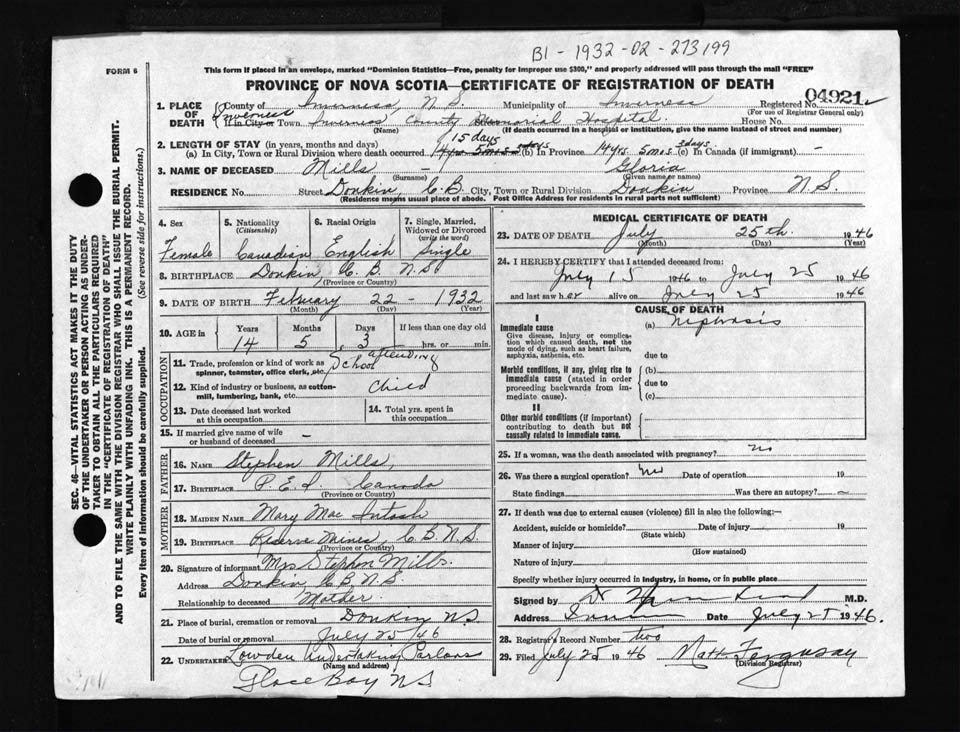 B1 - 1932-02-273199
FORM 6
This form if placed in an envelope, marked "Dominion Statistics—Free, penalty for improper use $300," and properly addressed will pass through the mail "FREE"
PROVINCE OF NOVA SCOTIA—CERTIFICATE OF REGISTRATION OF DEATH
04921
1. PLACE OF DEATH County of Inverness N.S. Municipality of Inverness Registered No.
(For use of Registrar General only)
Inverness If in City or Town Inverness County Memorial Hospital. House No.
(Name) (If death occurred in a hospital or institution, give the name instead of street and number)
2. LENGTH OF STAY (in years, months and days) 15 days
(a) In City, Town or Rural Division where death occurred 14yrs 5mos 3days (b) In Province 14yrs 5mos 3days (c) In Canada (if immigrant) -
3. NAME OF DECEASED Mills - Gloria
(Surname) (Given name or names)
RESIDENCE No. Street Donkin C.B. City, Town or Rural Division Donkin Province N.S.
(Residence means usual place of abode. Post Office Address for residents in rural parts not sufficient)
4. Sex 5. Nationality (Citizenship) 6. Racial Origin 7. Single, Married, Widowed or Divorced (write the word)
Female Canadian English Single
8. BIRTHPLACE Donkin C.B. N.S.
(Province or Country)
9. DATE OF BIRTH February 22 - 1932
(Month) (Day) (Year)
10. AGE in Years Months Days If less than one day old
14 5 3 hrs. or min.
OCCUPATION
11. Trade, profession or kind of work as spinner, teamster, office clerk, etc. School attending
12. Kind of industry or business, as cotton-mill, lumbering, bank, etc. Child
13. Date deceased last worked at this occupation
14. Total yrs. spent in this occupation
15. If married give name of wife or husband of deceased -
FATHER
16. NAME Stephen Mills,
17. BIRTHPLACE P.E.I. Canada
(Province or Country)
MOTHER
18. MAIDEN NAME Mary Mac Intosh
19. BIRTHPLACE Reserve Mines, C.B. N.S.
(Province or Country)
20. Signature of informant Mrs Stephen Mills.
Address Donkin, C.B. N.S.
Relationship to deceased Mother.
21. Place of burial, cremation or removal Donkin N.S.
Date of burial or removal July 25/46
22. UNDERTAKER Lowden Undertaking Parlors
(Name and address)
Glace Bay N.S
MEDICAL CERTIFICATE OF DEATH
23. DATE OF DEATH July 25th. 1946
(Month) (Day) (Year)
24. I HEREBY CERTIFY that I attended deceased from:
July 15 1946 to July 25 1946
and last saw her alive on July 25 1946
CAUSE OF DEATH
I
Immediate cause (a) nephrosis
Give disease, injury or complication which caused death, not the mode of dying, such as heart failure, asphyxia, asthenia, etc.
due to
Morbid conditions, if any, giving rise to immediate cause (stated in order proceeding backwards from immediate cause).
(b)
due to
(c)
II
Other morbid conditions (if important) contributing to death but not causally related to immediate cause.
25. If a woman, was the death associated with pregnancy? no
26. Was there a surgical operation? Date of operation 19
State findings Was there an autopsy? -
27. If death was due to external causes (violence) fill in also the following:—
Accident, suicide or homicide? Date of injury 19
(State which)
Manner of injury
(How sustained)
Nature of injury
Specify whether injury occurred in industry, in home, or in public place
Signed by Dr M.D.
Address Date July 25 1946.
28. Registrar's Record Number two
29. Filed July 25 1946 Matt. Ferguson
(Division Registrar)
SEC. 46—VITAL STATISTICS ACT MAKES IT THE DUTY
OF THE UNDERTAKER OR PERSON ACTING AS UNDER-
TAKER TO OBTAIN ALL THE PARTICULARS REQUIRED
IN THE "CERTIFICATE OF REGISTRATION OF DEATH"
AND TO FILE THE SAME WITH THE DIVISION REGISTRAR WHO SHALL ISSUE THE BURIAL PERMIT.
WRITE PLAINLY WITH UNFADING INK. THIS IS A PERMANENT RECORD.
Every item of information should be carefully supplied. (See reverse side for instructions.)